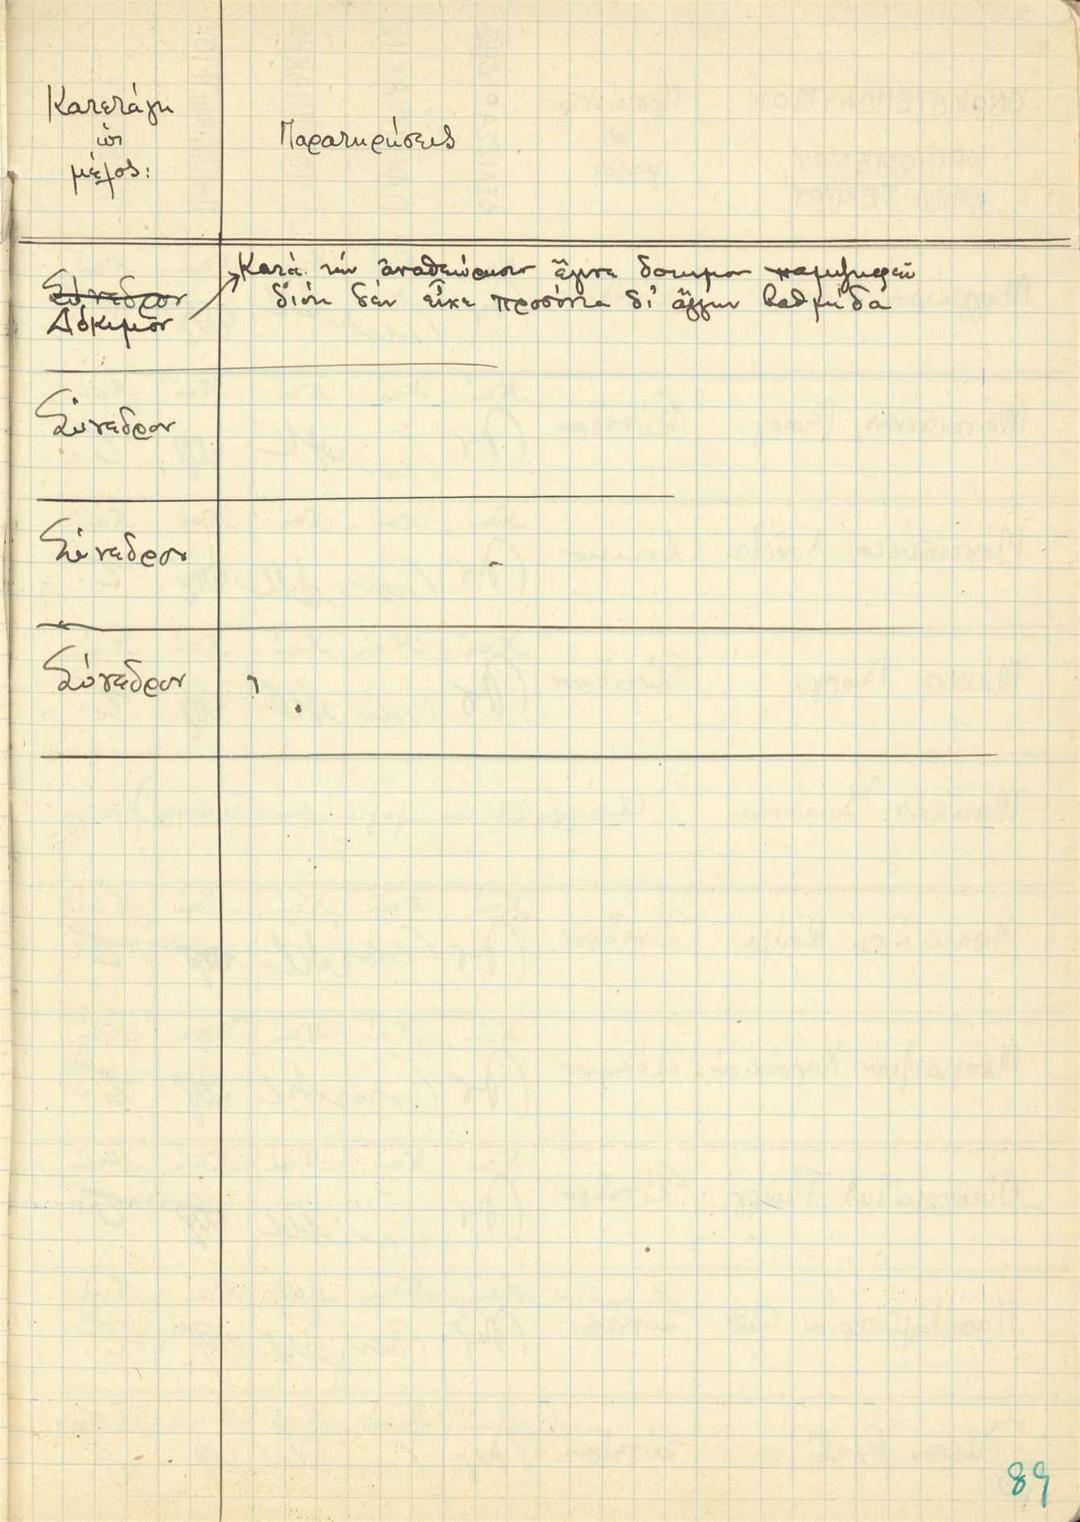 Κατετάγη
ὡς
μέλος:
Παρατηρήσεις
Σύνεδρον
Δόκιμον
Κατά τὴν ἀναθεώρησιν ἔγινε δοκιμον
διότι δὲν εἶχε προσόντα δι' ἄλλην βαθμίδα
Σύνεδρον
Σύνεδρον
Σύνεδρον
89